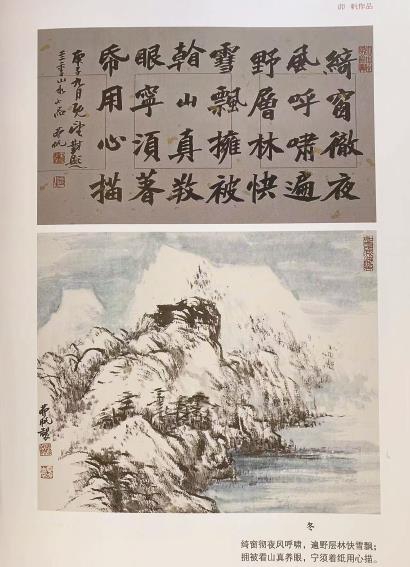 帆作品
綺窗徹夜
風呼嘯遍
野層林快
雪飄擁被
看山真養
眼寧須著
帋用心描
庚子九月既望對題
山水小品
冬
绮窗彻夜风呼啸，遍野层林快雪飘；
拥被看山真养眼，宁须着纸用心描。